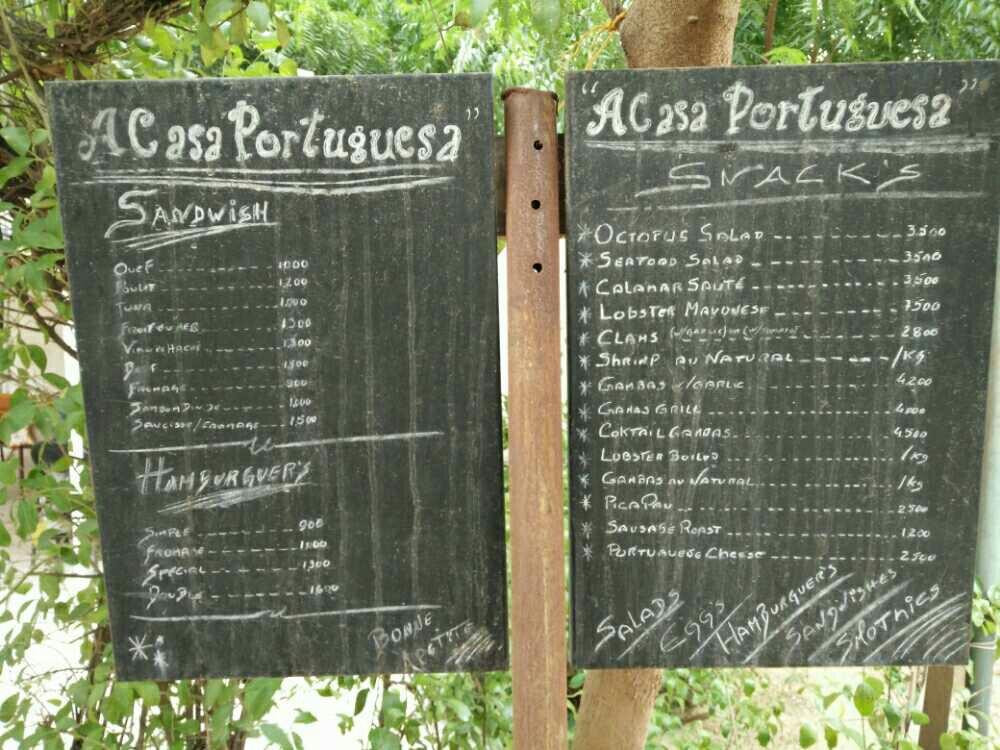 A Casa Portuguesa"
SANDWISH
OUEF ---------- 1000
POULIT ---------- 1200
TUNA ---------- 1000
---------- 1300
VIANDE HACHÉ ---------- 1300
BEEF ---------- 1500
FROMAGE ---------- 900
---------- 1000
SAUCISSE/FROMAGE ---------- 1500
HAMBURGUER'S
SIMPLE ---------- 900
FROMAGE ---------- 1100
SPECIAL ---------- 1300
DOUBLE ---------- 1600
BONNE
APETITE
"A Casa Portuguesa"
SNACK'S
* OCTOPUS SALAD ---------- 3.500
* SEAFOOD SALAD ---------- 3500
* CALAMAR SAUTÉ ---------- 3,500
* LOBSTER MAYONESE ---------- 7500
* CLAMS (W/GARLIC) OR (W/TOMATO) ---------- 2800
* SHRIMP AU NATURAL ---------- /KG
* GAMBAS W/GARLIC ---------- 4200
* GAMAS GRILL ---------- 4000
* COKTAIL GAMBAS ---------- 4500
* LOBSTER BOILED ---------- /Kg
* GAMBAS AU NATURAL ---------- /Kg
* PICA PAU ---------- 2500
* SAUSAGE ROAST ---------- 1200
* PORTUGUESE CHEESE ---------- 2500
SALADS / EGGS / HAMBURGUER'S / SANDWISHES / SMOTHIES